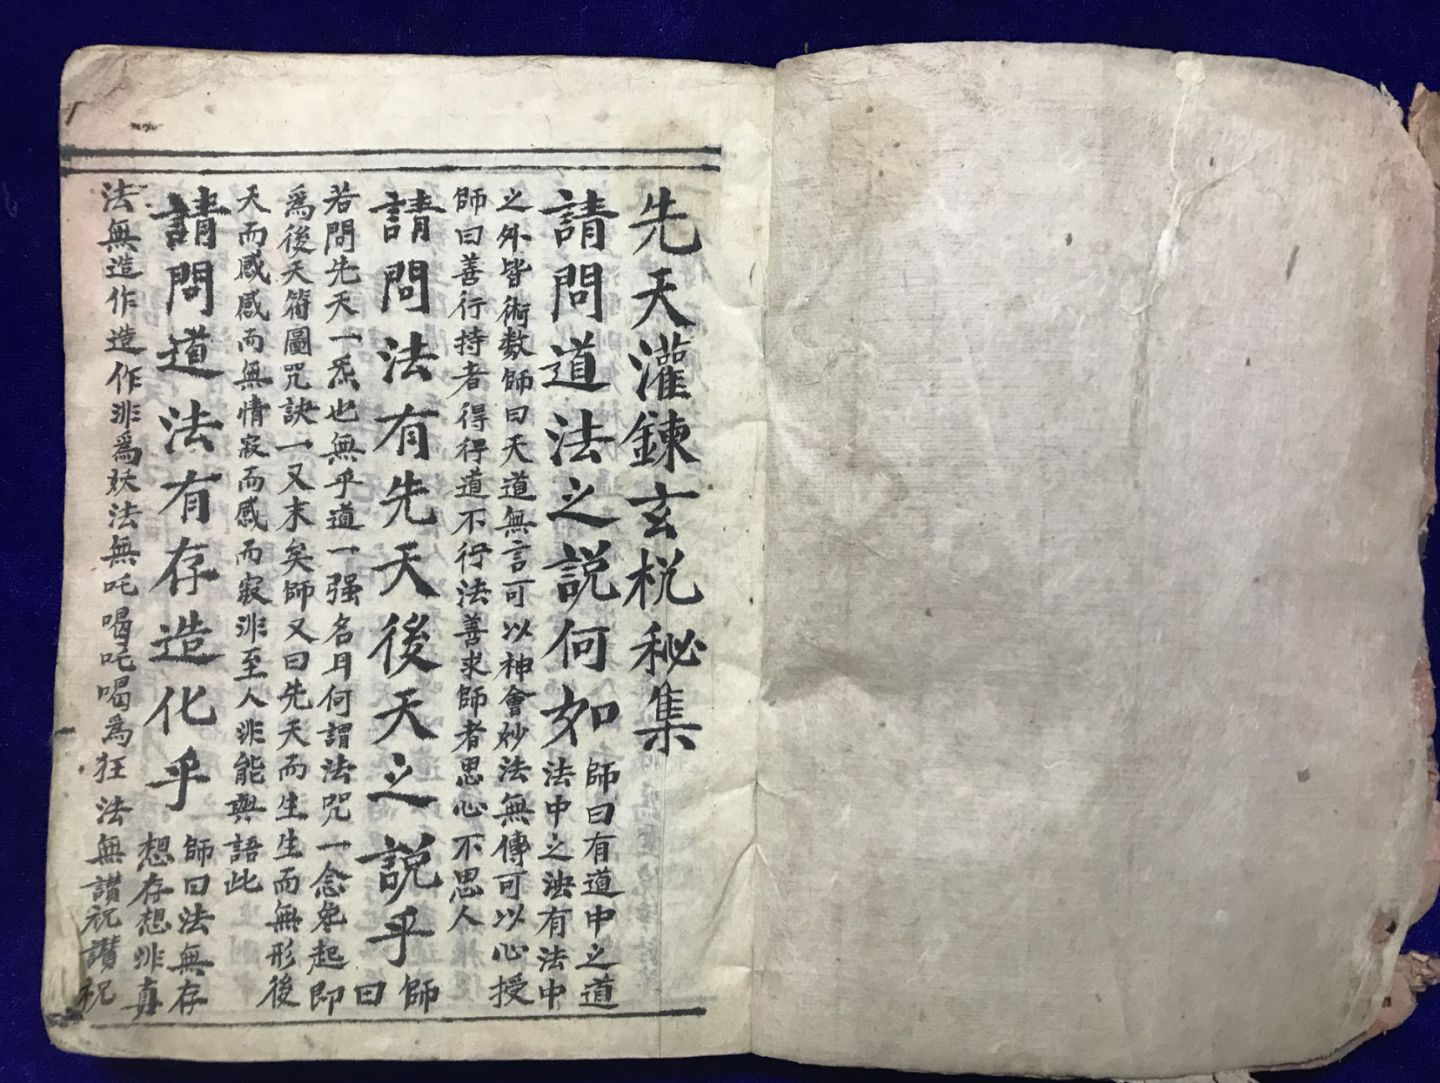 先天灌鍊玄梲秘集
請問道法之説何如師曰有道中之道
法中之法有法中
之外皆術数師曰天道無言可以神會妙法無傳可以心授
師曰善行持者得得道不行法善求師者思心不思人
請問法有先天後天之説乎師曰
若問先天一炁也無乎道一强名月何謂法咒一念起即
爲後天符圖咒訣一又末矣師又曰先天而生生而無形後
天而感感而無情寂而感而寂非至人非能與語此
請問道法有存造化乎師曰法無存
想存想非真
法無造作造作非爲妖法無吒喝吒喝爲狂法無讃祝讃祝